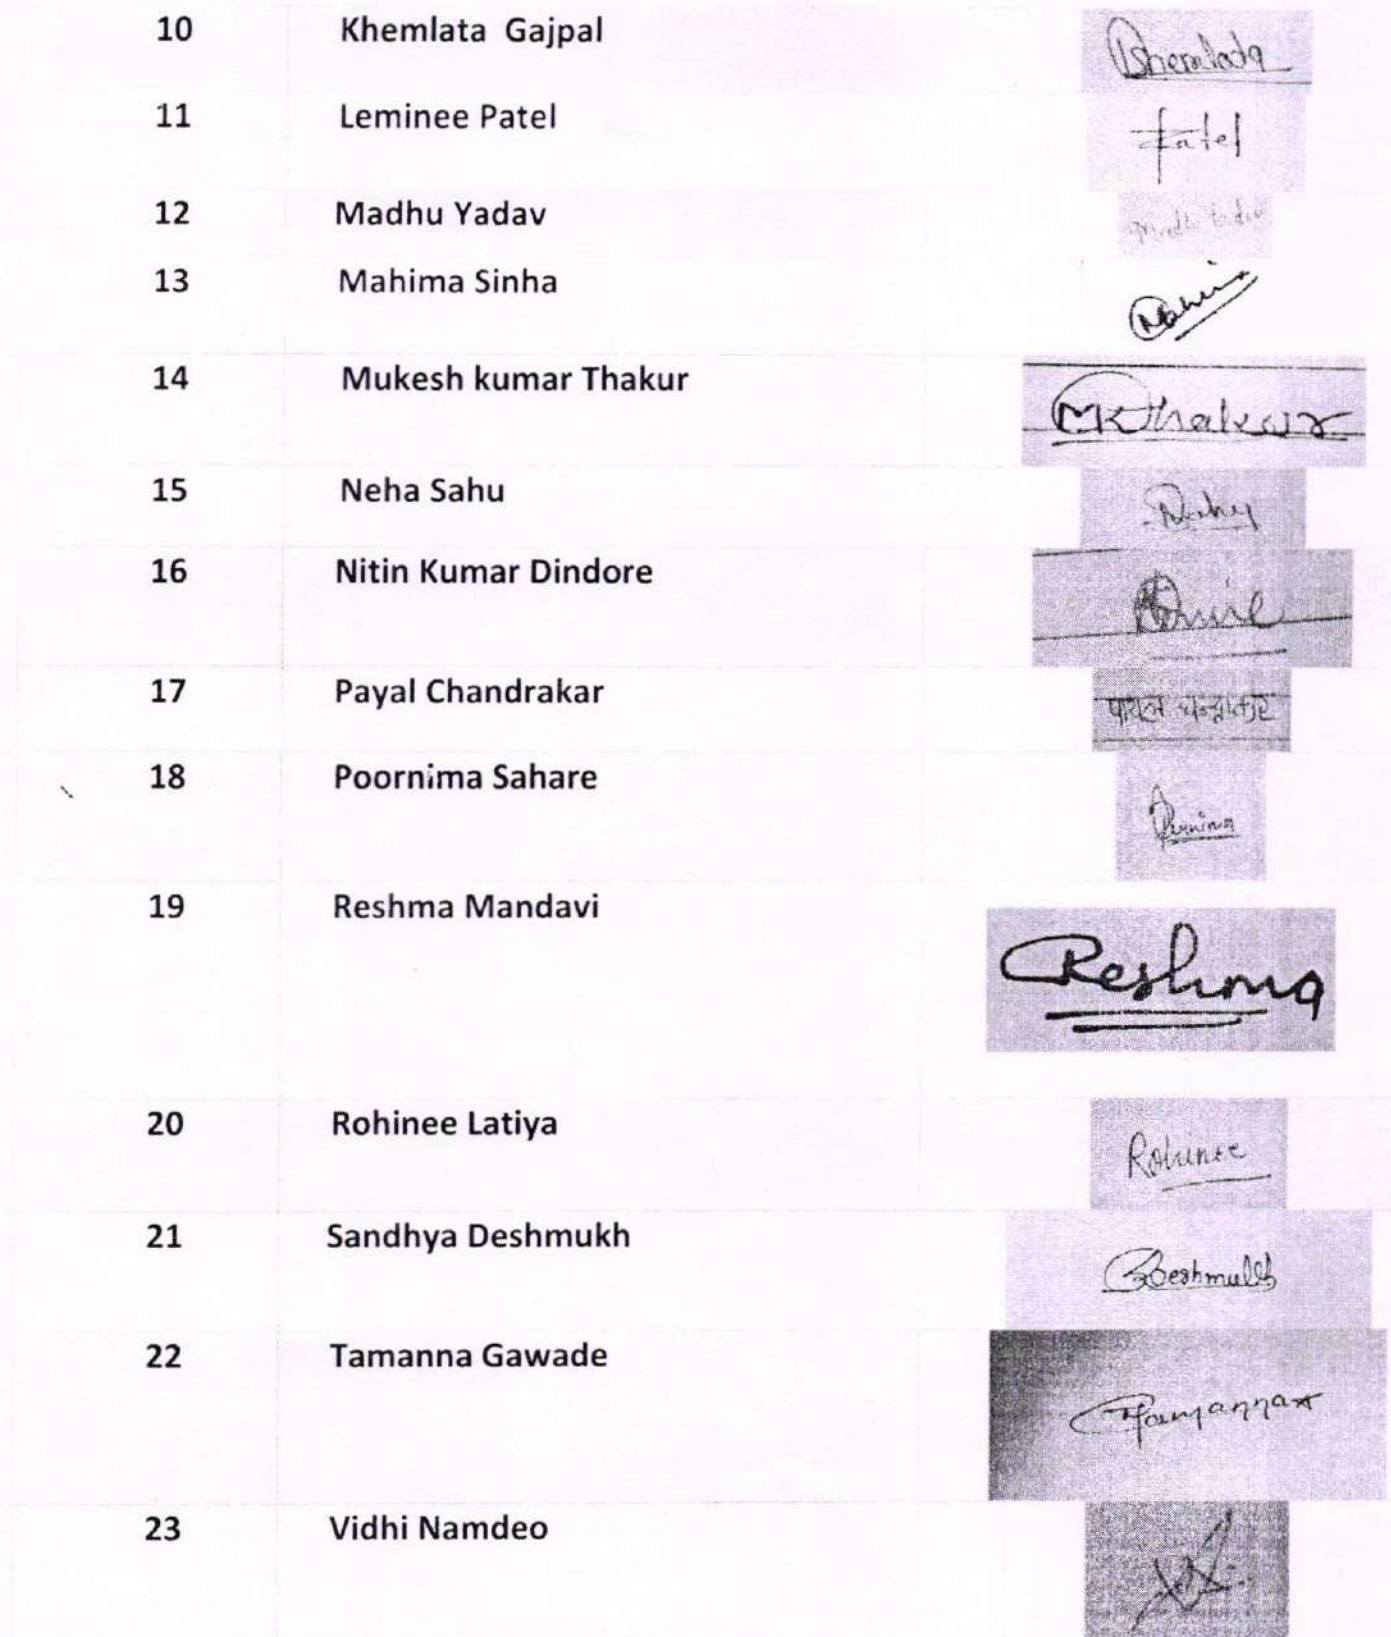 10 Khemlata Gajpal Khemlata
11 Leminee Patel Patel
12 Madhu Yadav
13 Mahima Sinha Mahima
14 Mukesh kumar Thakur MKThakur
15 Neha Sahu
16 Nitin Kumar Dindore
17 Payal Chandrakar पायल चन्द्राकर
18 Poornima Sahare Purnima
19 Reshma Mandavi Reshma
20 Rohinee Latiya Rohinee
21 Sandhya Deshmukh Deshmukh
22 Tamanna Gawade Tamanna
23 Vidhi Namdeo